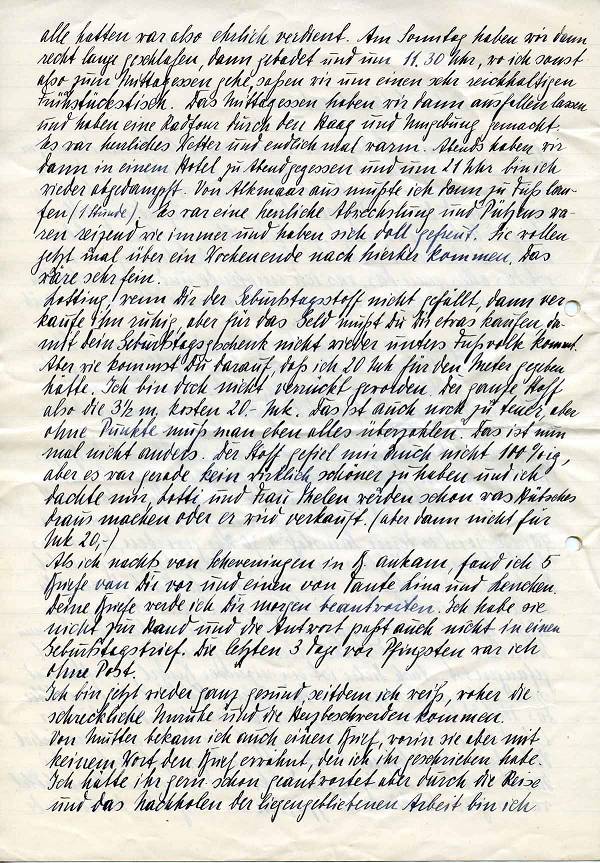 alle hatten war also ehrlich verdient. Am Sonntag haben wir dann
recht lange geschlafen, dann gebadet und um 11.30 Uhr, wo ich sonst
also zum Mittagessen gehe, saßen wir um einen sehr reichhaltigen
Frühstückstisch. Das Mittagessen haben wir dann ausfallen lassen
und haben eine Radtour durch den Haag und Umgebung gemacht.
Es war herrliches Wetter und endlich mal warm. Abends haben wir
dann in einem Hotel zu Abend gegessen und um 21 Uhr bin ich
wieder abgedampft. Von Alkmaar aus mußte ich dann zu Fuß lau-
fen (1 Stunde). Es war eine herrliche Abwechslung und wa-
ren reizend wie immer und haben sich doll gefreut. Sie wollen
jetzt mal über ein Wochenende nach hierher kommen. Das
wäre sehr fein.
Lotting, wenn Dir der Geburtstagsstoff nicht gefällt, dann ver
kaufe ihn ruhig, aber für das Geld mußt Du Dir etwas kaufen, da-
mit dein Geburtstagsgeschenk nicht wieder unters Fußvolk kommt.
Aber wie kommst Du darauf, daß ich 20 Mk für den Meter gegeben
hätte. Ich bin doch nicht verrückt geworden. Der ganze Stoff
also die 3½ m, kosten 20.- Mk. Das ist auch noch zu teuer, aber
ohne Punkte muß man eben alles überzahlen. Das ist nun
mal nicht anders. Der Stoff gefiel mir auch nicht 100 %ig,
aber es war gerade kein wirklich schöner zu haben und ich
dachte mir, Lotti und Frau werden schon was Hübsches
draus machen oder er wird verkauft. (aber dann nicht für
Mk 20,-)
Als ich nachts von Scheveningen in B. ankam, fand ich 5
Briefe von Dir vor und einen von Tante Lina und Lenchen.
Deine Briefe werde ich Dir morgen beantworten. Ich habe sie
nicht zur Hand und die Antwort paßt auch nicht in einen
Geburtstagsbrief. Die letzten 3 Tage vor Pfingsten war ich
ohne Post.
Ich bin jetzt wieder ganz gesund, seitdem ich weiß, woher die
schreckliche Unruhe und die Herzbeschwerden kommen.
Von Mutter bekam ich auch einen Brief, worin sie aber mit
keinem Wort den Brief erwähnt, den ich ihr geschrieben habe.
Ich hätte ihr gern schon geantwortet aber durch die Reise
und das Nachholen der liegengebliebenen Arbeit bin ich